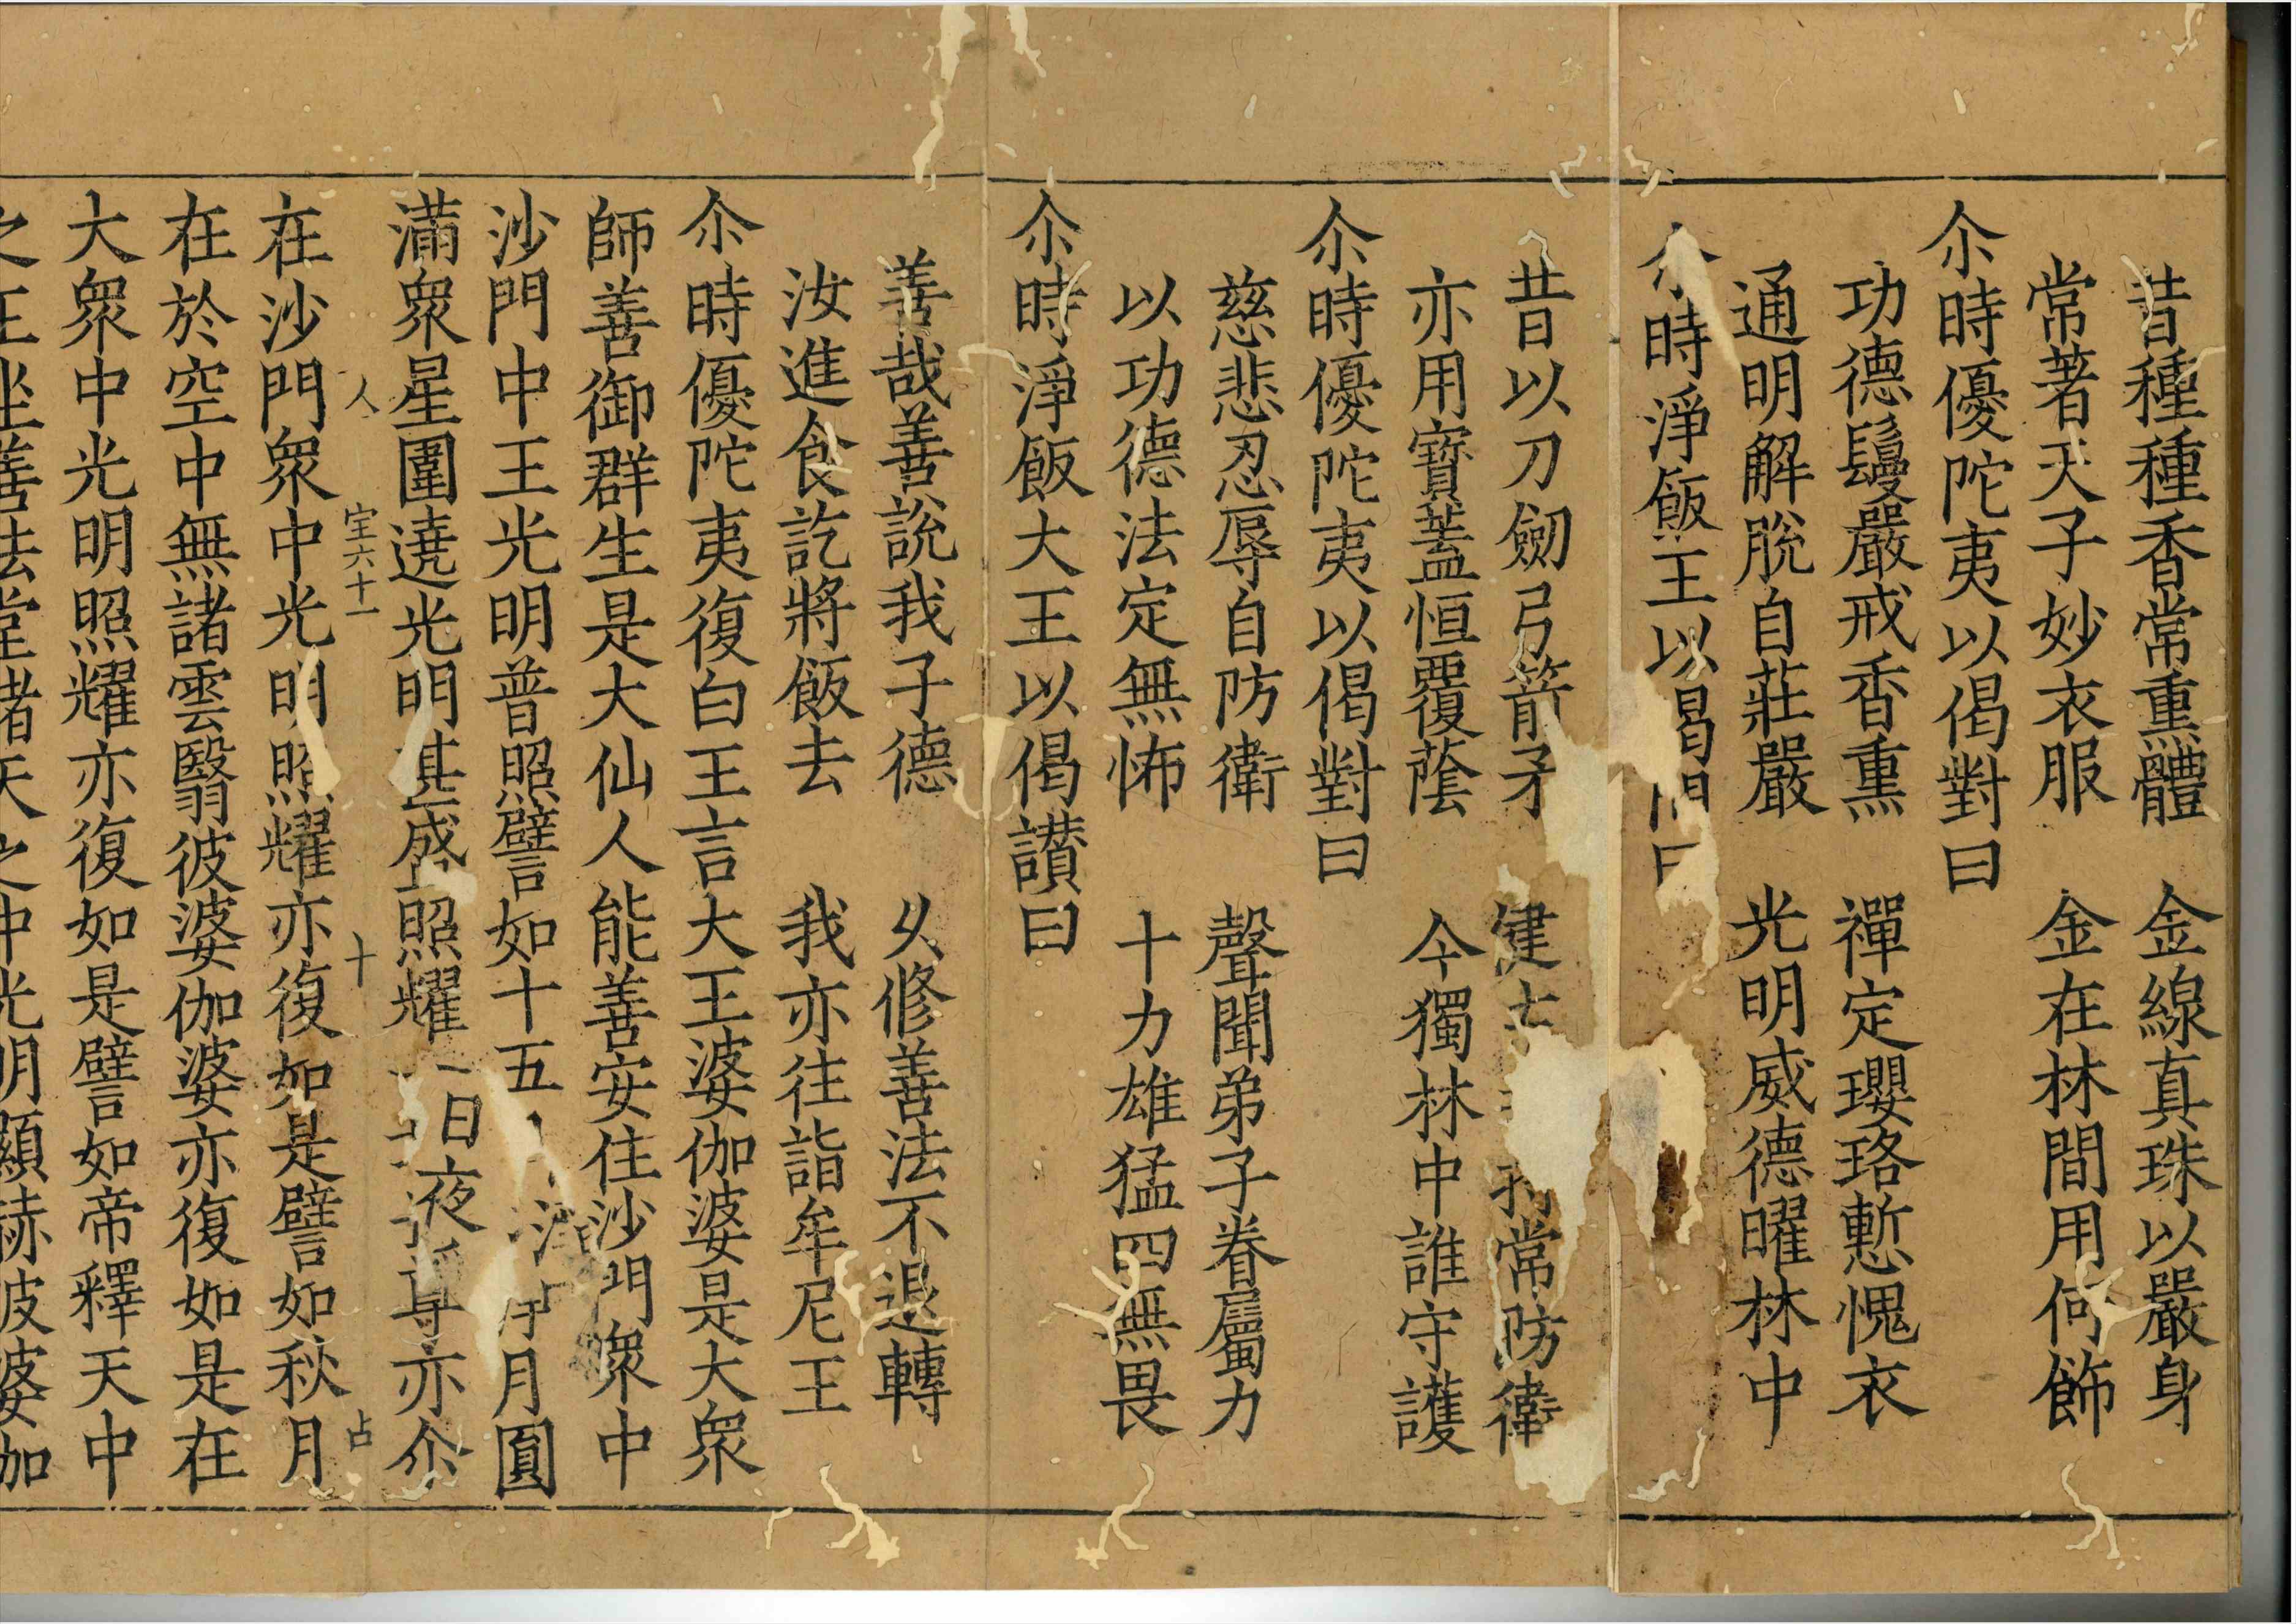 昔種種香常熏體　金線真珠以嚴身
常著天子妙衣服　金在林間用何飾
尒時優陀夷以偈對曰
功德鬘嚴戒香熏　禪定瓔珞慙愧衣
通明解脫自莊嚴　光明威德曜林中
尒時淨飯王以偈問曰
昔以刀劒弓箭矛　健士　常防衛
亦用寶蓋恒覆蔭　今獨林中誰守護
尒時優陀夷以偈對曰
慈悲忍辱自防衛　聲聞弟子眷屬力
以功德法定無怖　十力雄猛四無畏
尒時淨飯大王以偈讃曰
善哉善說我子德　久修善法不退轉
汝進食訖將飯去　我亦往詣牟尼王
尒時優陀夷復白王言大王婆伽婆是大衆
師善御群生是大仙人能善安住沙門衆中
沙門中王光明普照譬如十五日月圓
滿衆星圍遶光明甚盛照耀日夜亦尒
人　宝六十一　十　占
在沙門衆中光明照耀亦復如是譬如秋月
在於空中無諸雲翳彼婆伽婆亦復如是在
大衆中光明照耀亦復如是譬如帝釋天中
之王坐善法堂諸天之中光明顯赫彼婆伽